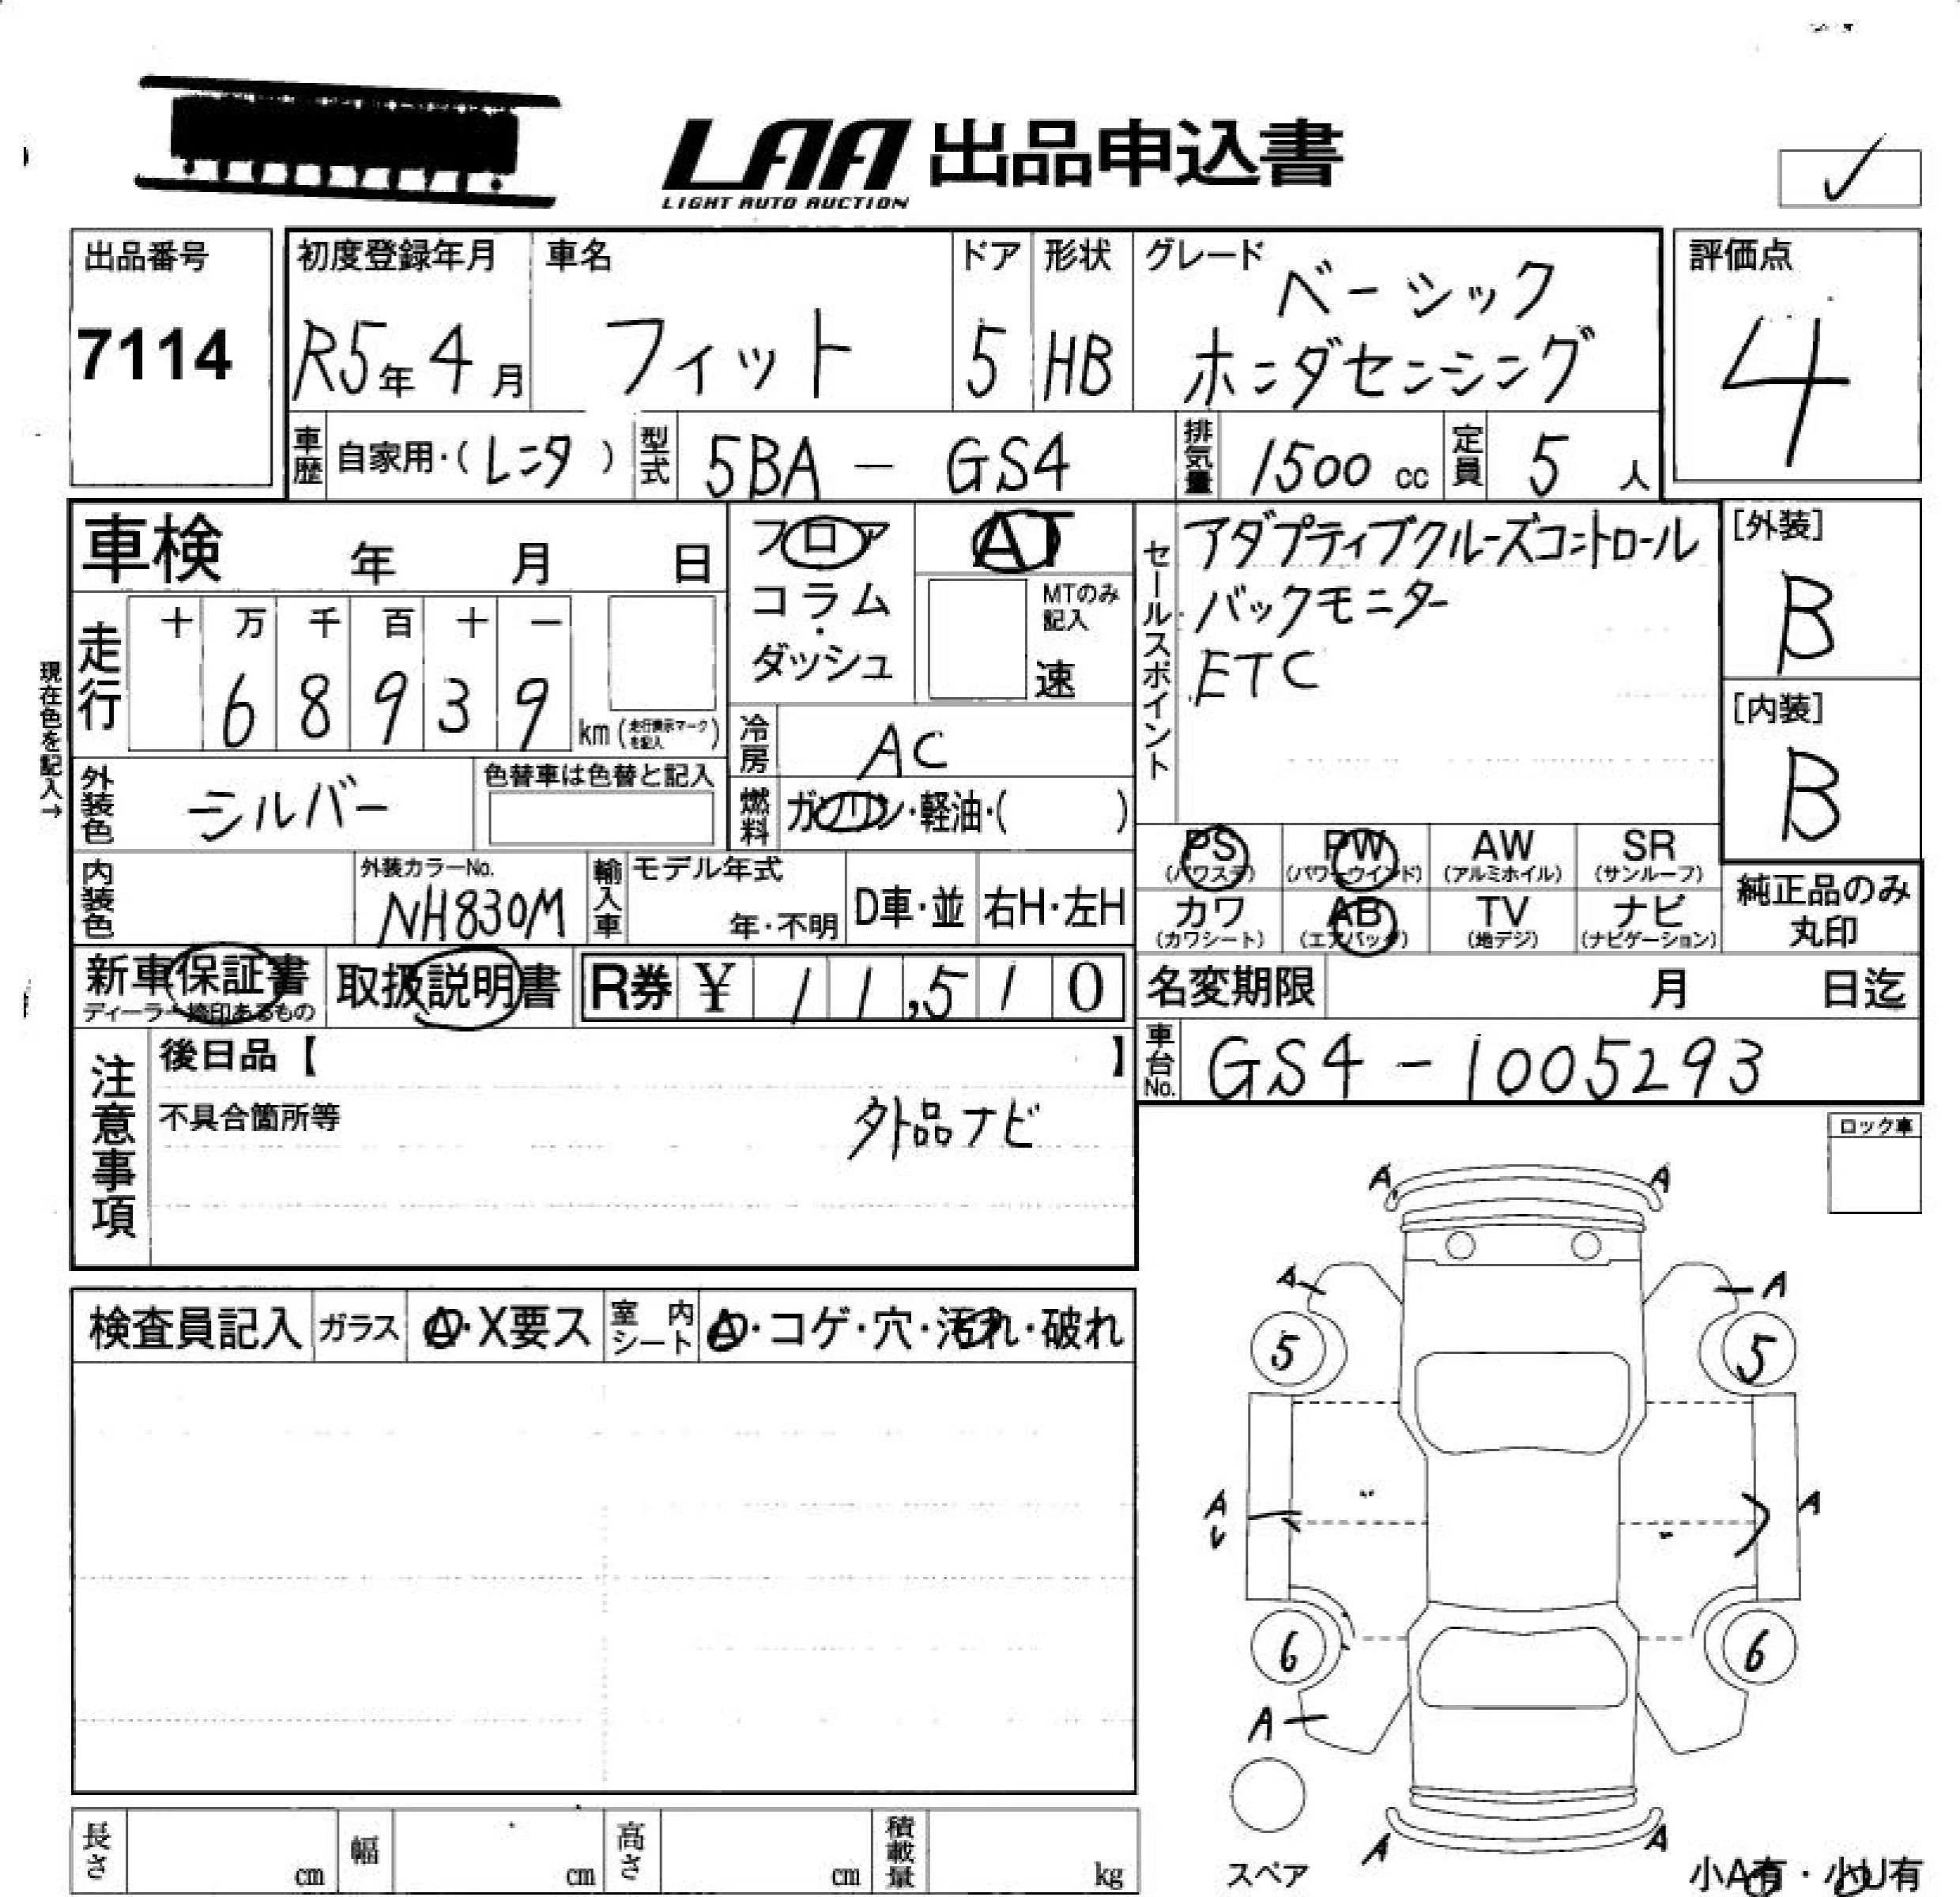 LAA 出品申込書
LIGHT AUTO AUCTION
出品番号
7114
初度登録年月
R5年4月
車名
フィット
ドア
5
形状
HB
グレード
ベーシック
ホンダセンシング
評価点
4
車歴
自家用・(レンタ)
型式
5BA - GS4
排気量
1500 cc
定員
5人
車検 年 月 日
フロア
コラム・
ダッシュ
AT
MTのみ
記入
速
セールスポイント
アダプティブクルーズコントロール
バックモニター
ETC
[外装]
B
[内装]
B
現在色を記入→
走行
十 万 千 百 十 一
6 8 9 3 9
km(走行表示マークを記入)
冷房
AC
燃料
ガソリン・軽油・( )
外装色
シルバー
色替車は色替と記入
内装色
外装カラーNo.
NH830M
輸入車
モデル年式
年・不明
D車・並
右H・左H
PS
(パワステ)
PW
(パワーウインド)
AW
(アルミホイル)
SR
(サンルーフ)
カワ
(カワシート)
AB
(エアバッグ)
TV
(地デジ)
ナビ
(ナビゲーション)
純正品のみ
丸印
新車保証書
ディーラー捺印あるもの
取扱説明書
R券 ¥ 11,510
名変期限 月 日迄
車台No.
GS4-1005293
注意事項
後日品【 】
不具合箇所等
外品ナビ
ロック車
検査員記入
ガラス
A・X要ス
室内シート
A・コゲ・穴・汚れ・破れ
A A
A A
5 5
A A
6 6
A
A A
スペア
小A有・小U有
長さ cm
幅 cm
高さ cm
積載量 kg